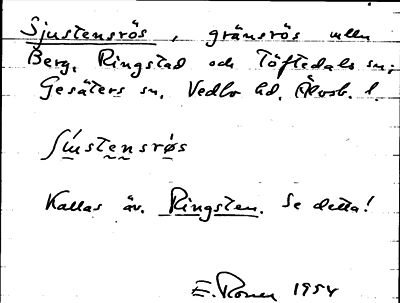 Sjustensrös, gränsrös mellan
Berg, Ringstad och Töftedals sn;
Gesäters sn, Vedbo hd, Älvsb. l.
ʃu̍stensrøs
Kallas äv. Ringsten. Se detta!
1954